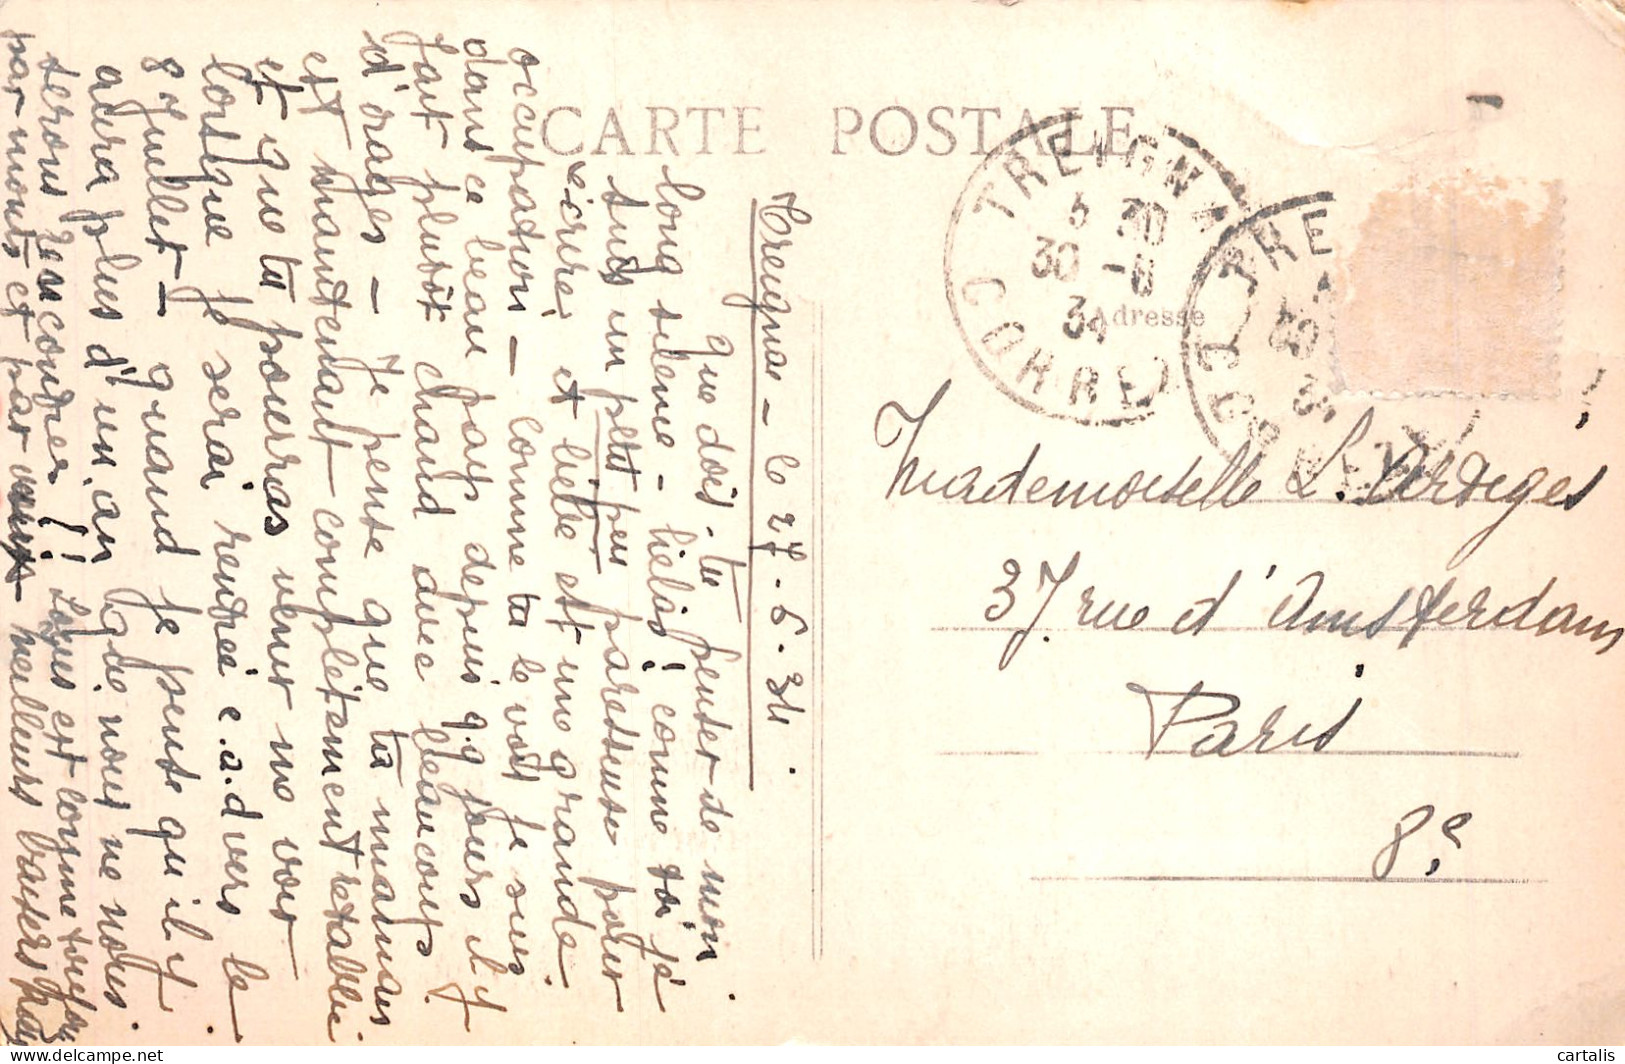 CARTE POSTALE
Adresse
TREIGNAC
3 30
30 -6
34
CORRÈZE
TRE
30
34
CORRÈZE
Treignac - le 27.6.34.
que dois-tu penser de mon
long silence - hélas! comme toi je
suis un petit peu paresseuse pour
écrire et lire est une grande
occupation - comme tu le vois je suis
dans ce beau pays depuis q.q jours il y
fait plutôt chaud avec beaucoup
d'orages - Je pense que ta maman
est maintenant complètement rétablie
et que tu pourras venir me voir
lorsque je serai rentrée c.a.d vers le
8 Juillet - quand je pense qu'il y
aura plus d'un an que nous ne nous
serons rencontrées!! est comme toujours
par monts et par vaux meilleurs baisers
Mademoiselle L. Vertiges
37. rue d'Amsterdam
Paris
8e
cartalis